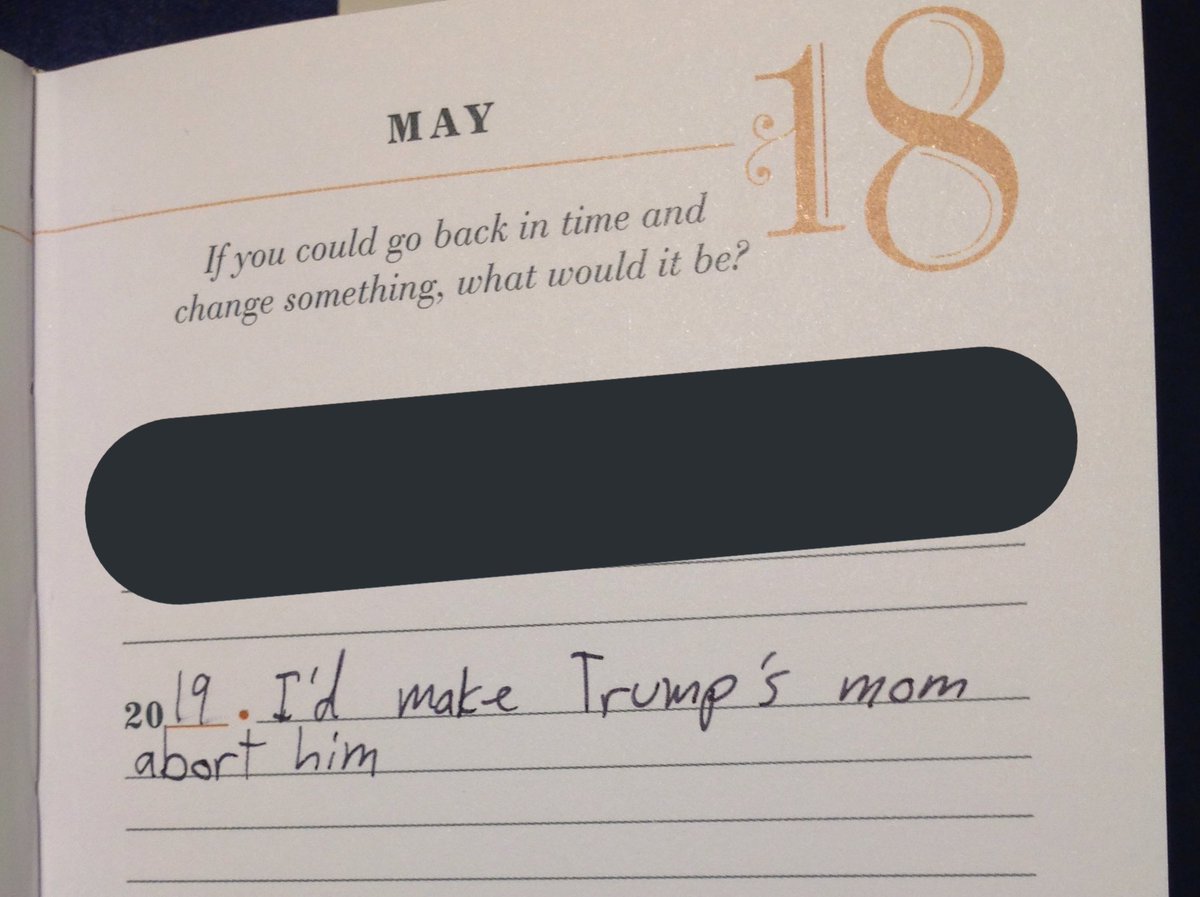 MAY
18
If you could go back in time and
change something, what would it be?
2019. I'd make Trump's mom
abort him